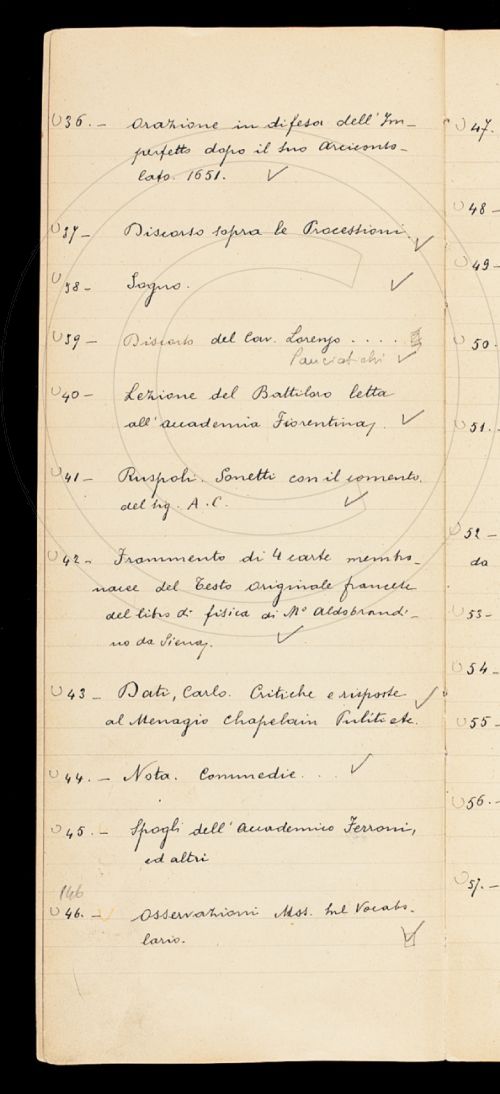 36. — Orazione in difesa dell'Im-
perfetto dopo il suo Arciconso-
lato. 1651.
37 — Discorso sopra le Processioni
38 — Sogno.
39 — Discorso del Cav. Lorenzo . . . . .
Panciatichi
40 — Lezione del Battiloro letta
all'Accademia Fiorentina.
41 — Ruspoli. Sonetti con il comento.
del Sig. A. C.
42 — Frammento di 4 carte membra-
nacee del Testo originale francese
del libro di fisica di Mº Aldobrandi-
no da Siena.
43 — Dati, Carlo. Critiche e risposte
al Menagio Chapelain Puliti etc.
44. — Nota. Commedie. . . .
45. — Spogli dell'Accademico Ferroni,
ed altri
146
46. — Osservazioni Mss. sul Vocabo-
lario.
47.
48 —
49 —
50
51.
52 —
da
53 —
54 —
55 —
56. —
57. —